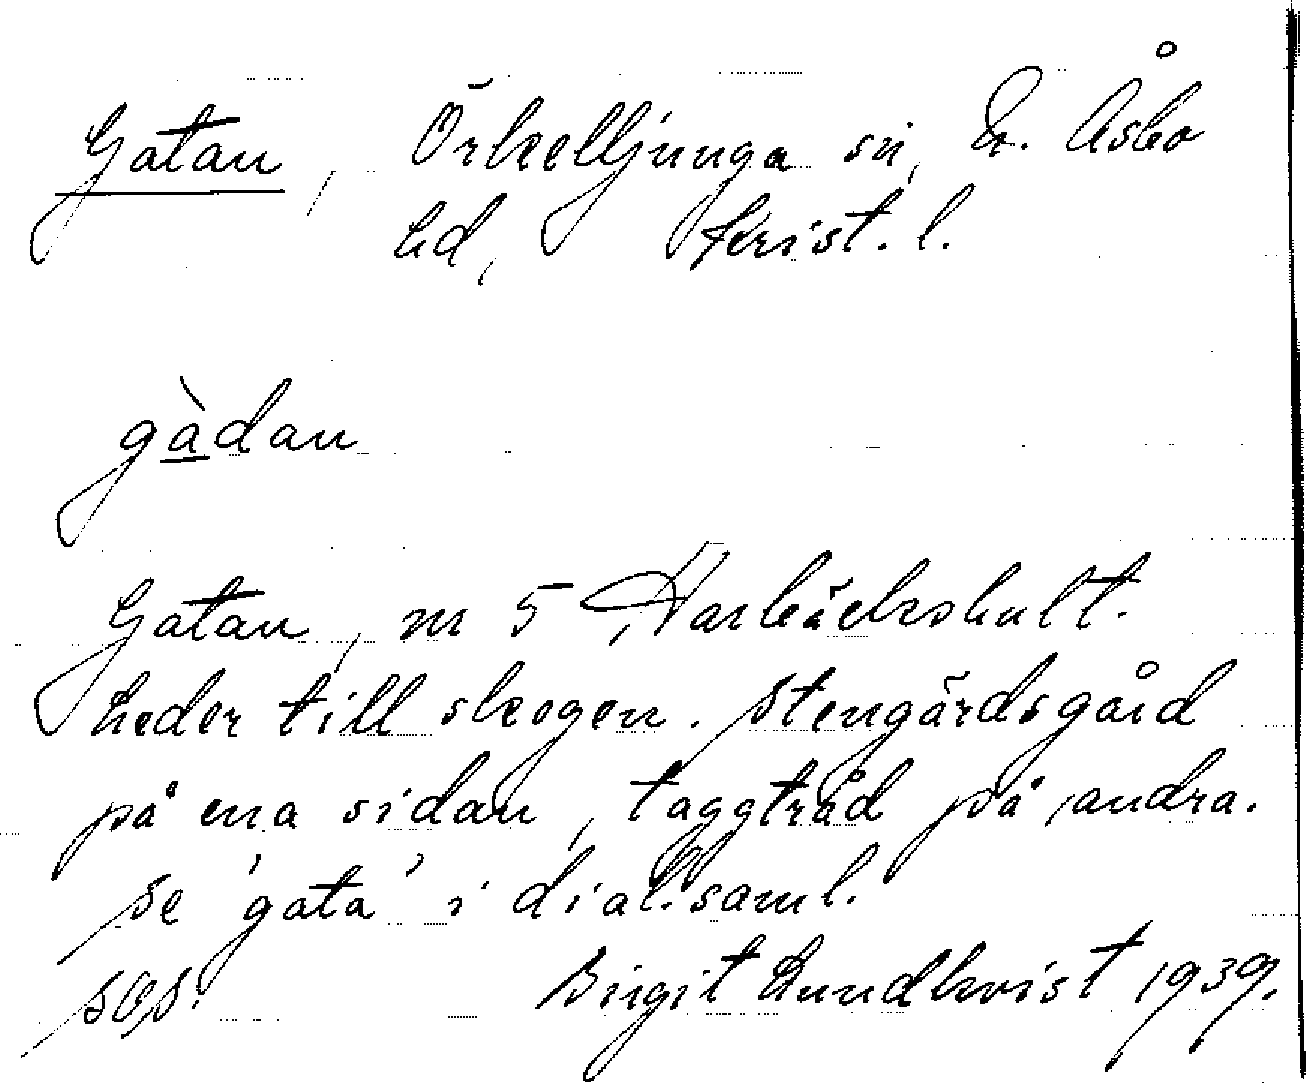 Gatan, Örkelljunga sn, N. Åsbo
hd, Krist. l.
gàdan
Gatan, nr 5 Harbäckshult.
Leder till skogen. Stengärdsgård
på ena sidan, taggtråd på andra.
Se 'gata' i dial.saml.
Birgit Lundkvist 1939.